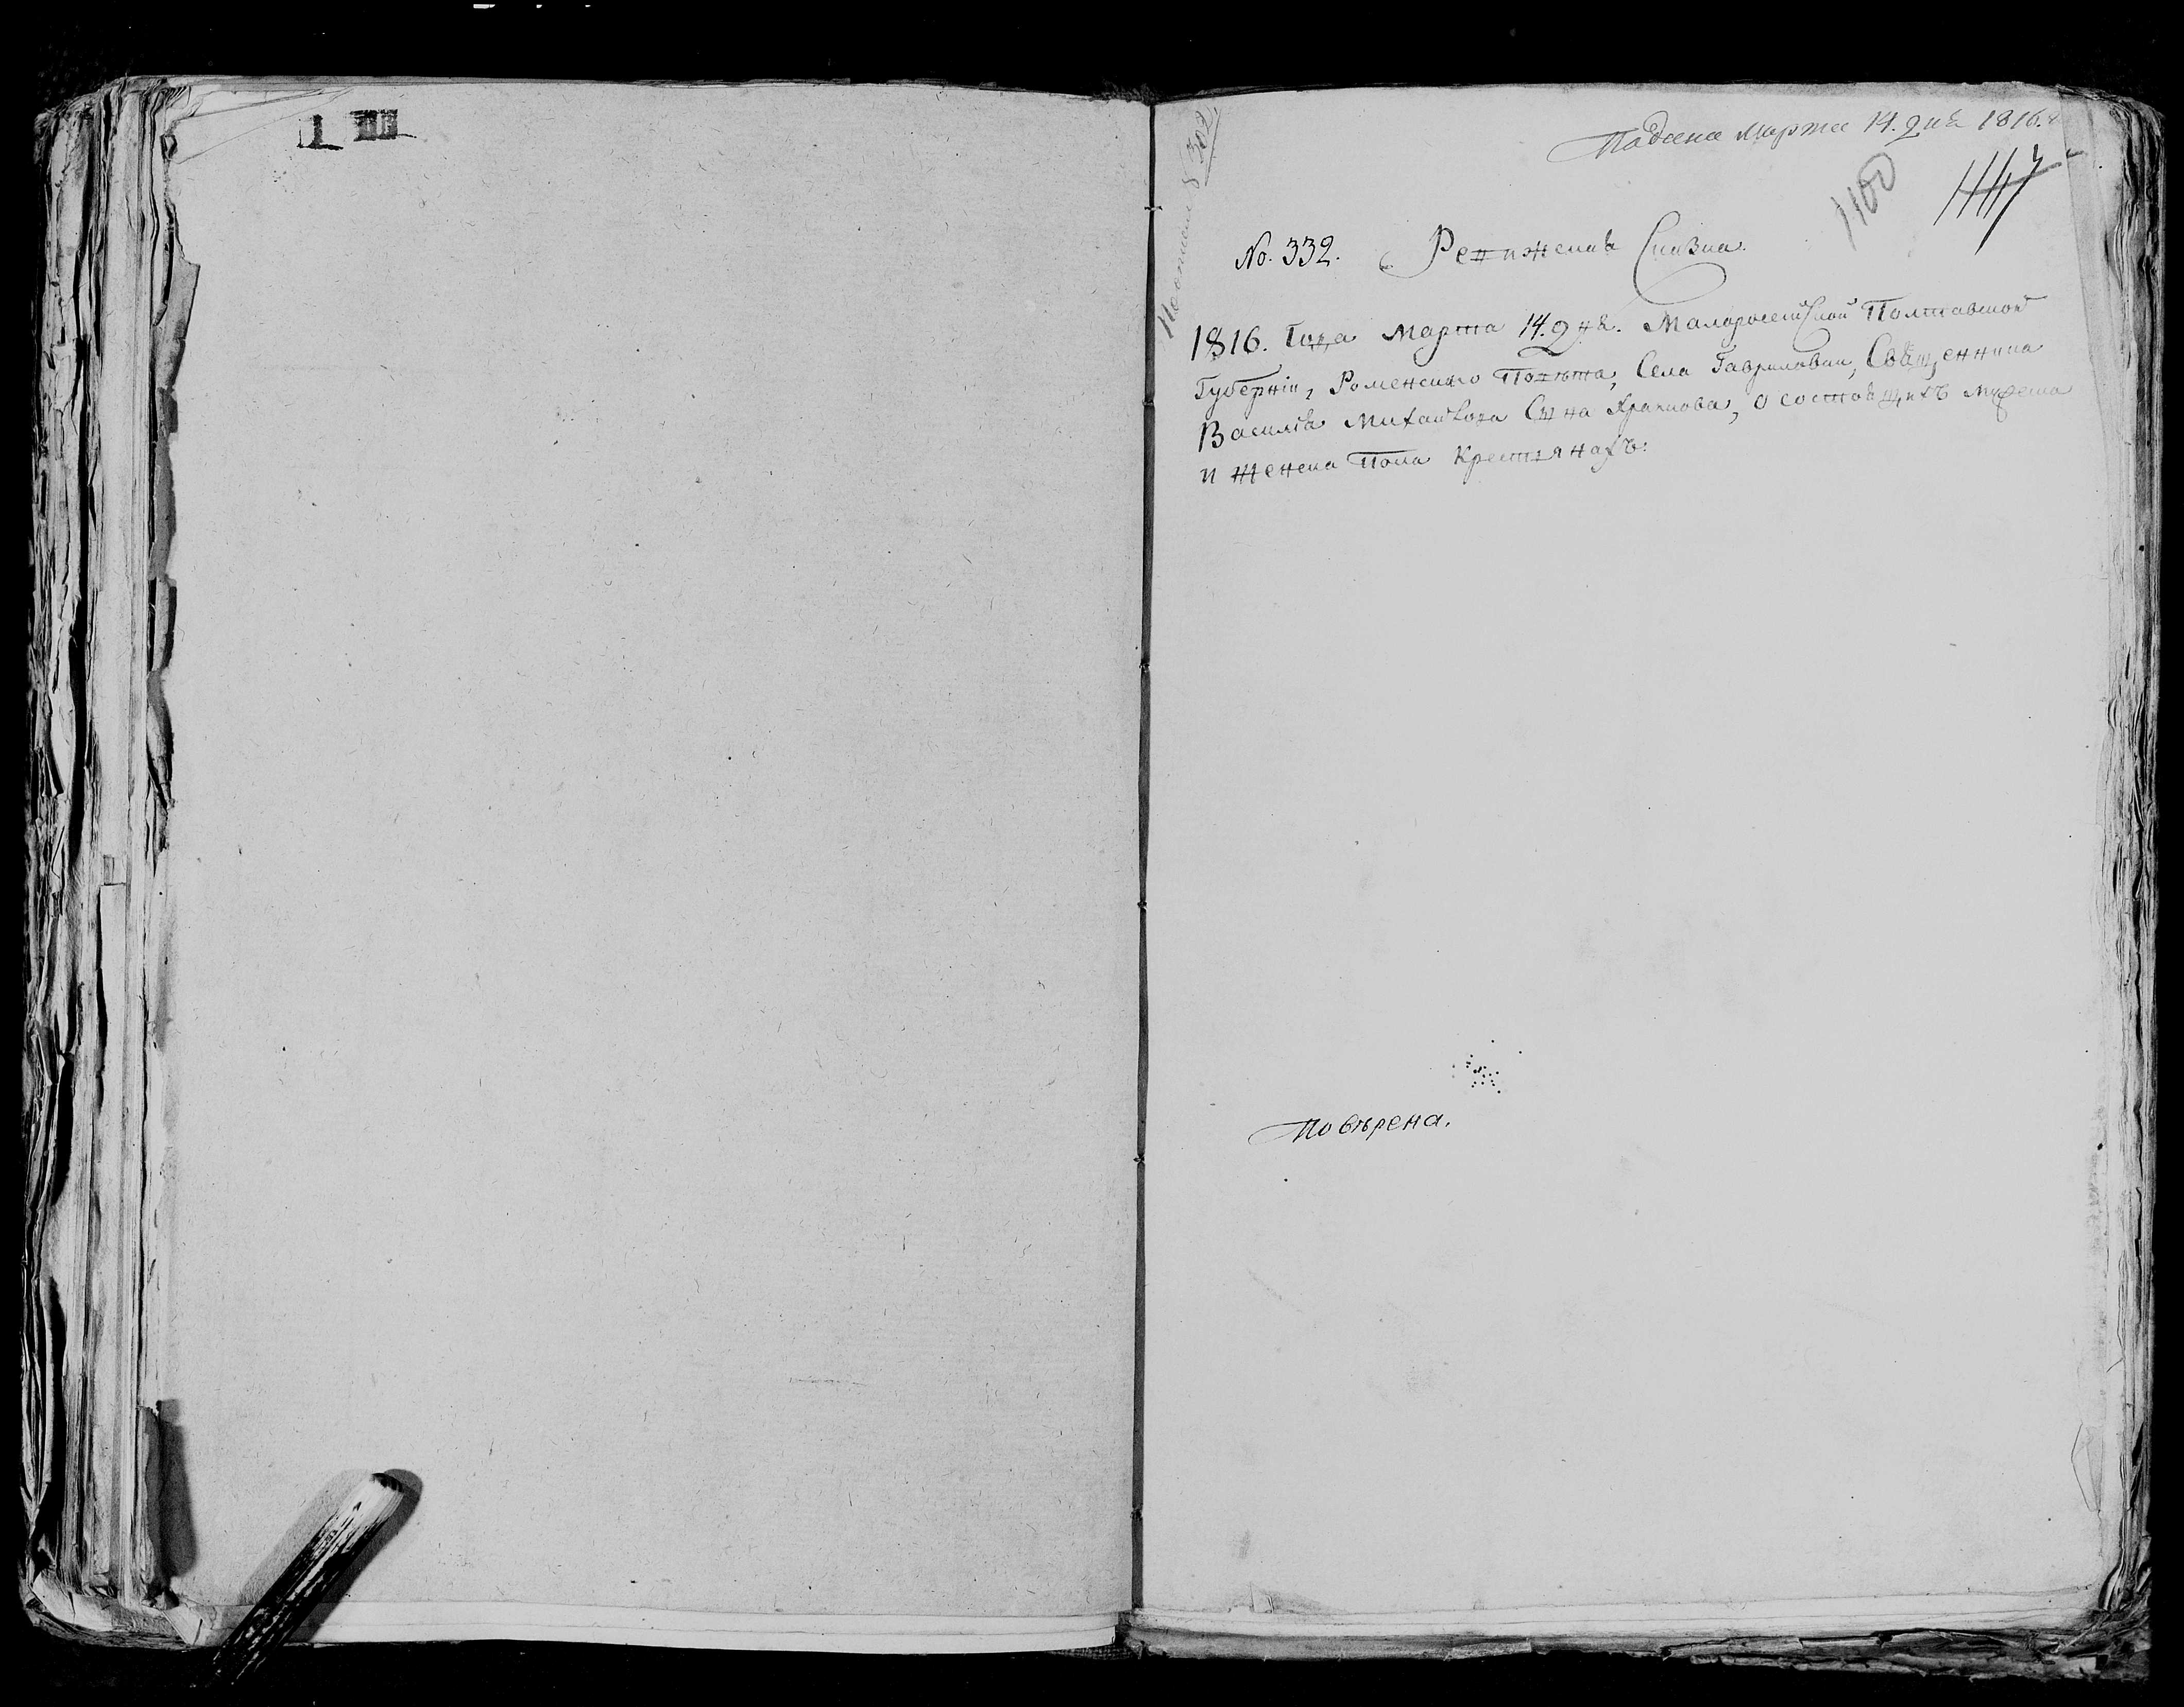 Подана марта 14. дня 1816.
1100
1117
No. 332. Ревижская Сказка.
1816. Года Марта 14. дня. Малоросейской Полтавской
Губерніи, Роменского Повѣта, Села Гавриловки, Священника
Василія Михайлова Сына Храпкова, о состоящихъ мужеска
и женска пола Крестянахъ:
Повѣрена.